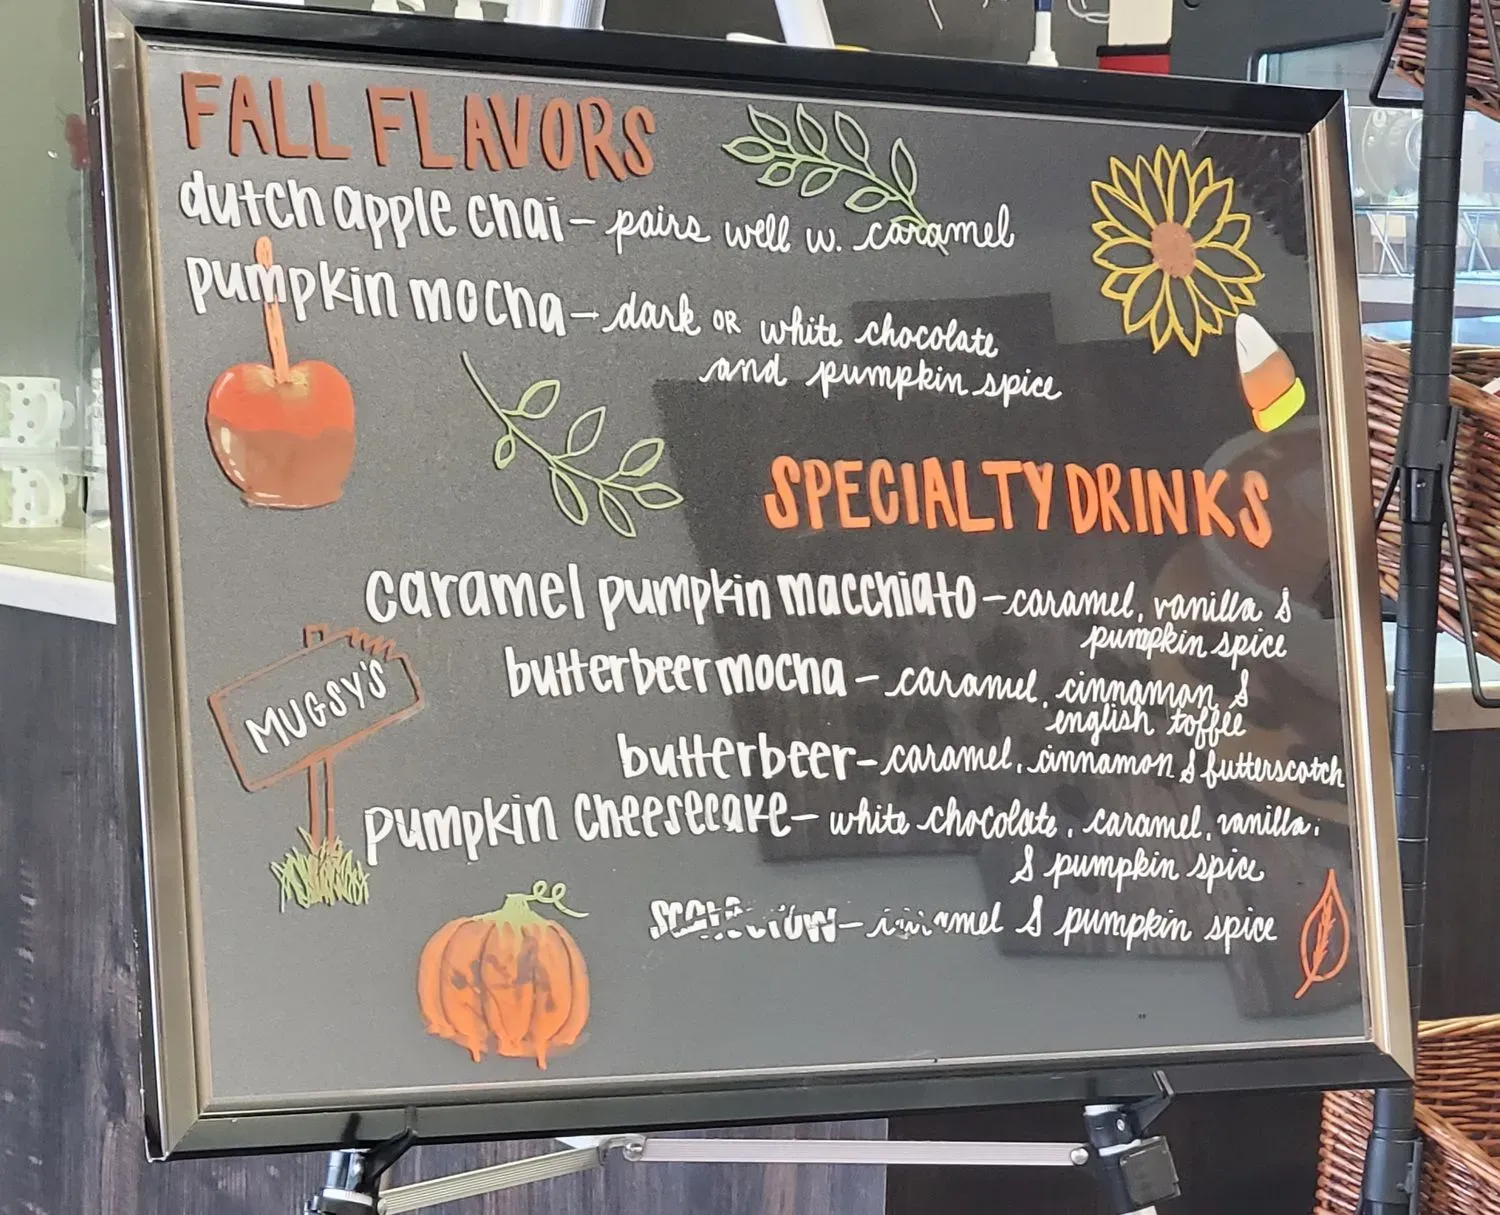 FALL FLAVORS
dutch apple chai - pairs well w. caramel
pumpkin mocha - dark OR white chocolate
and pumpkin spice
SPECIALTY DRINKS
caramel pumpkin macchiato - caramel, vanilla &
pumpkin spice
butterbeer mocha - caramel, cinnamon &
english toffee
butterbeer - caramel, cinnamon & butterscotch
pumpkin cheesecake - white chocolate, caramel, vanilla,
& pumpkin spice
scarecrow - caramel & pumpkin spice
MUGSY'S